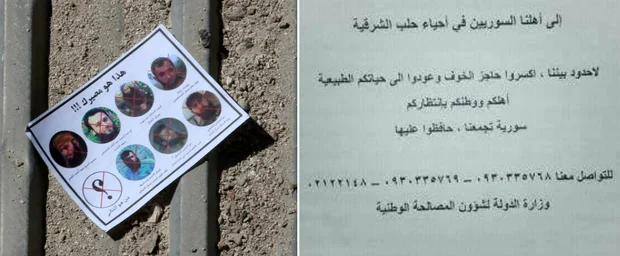 هذا هو مصيرك !!!
من هو التالي
إلى أهلنا السوريين في أحياء حلب الشرقية
لاحدود بيننا ، اكسروا حاجز الخوف وعودوا الى حياتكم الطبيعية
أهلكم ووطنكم بإنتظاركم
سورية تجمعنا ، حافظوا عليها
للتواصل معنا ٠٩٣٠٣٣٥٧٦٨ – ٠٩٣٠٣٣٥٧٦٩ – ٠٢١٢٢١٤٨
وزارة الدولة لشؤون المصالحة الوطنية